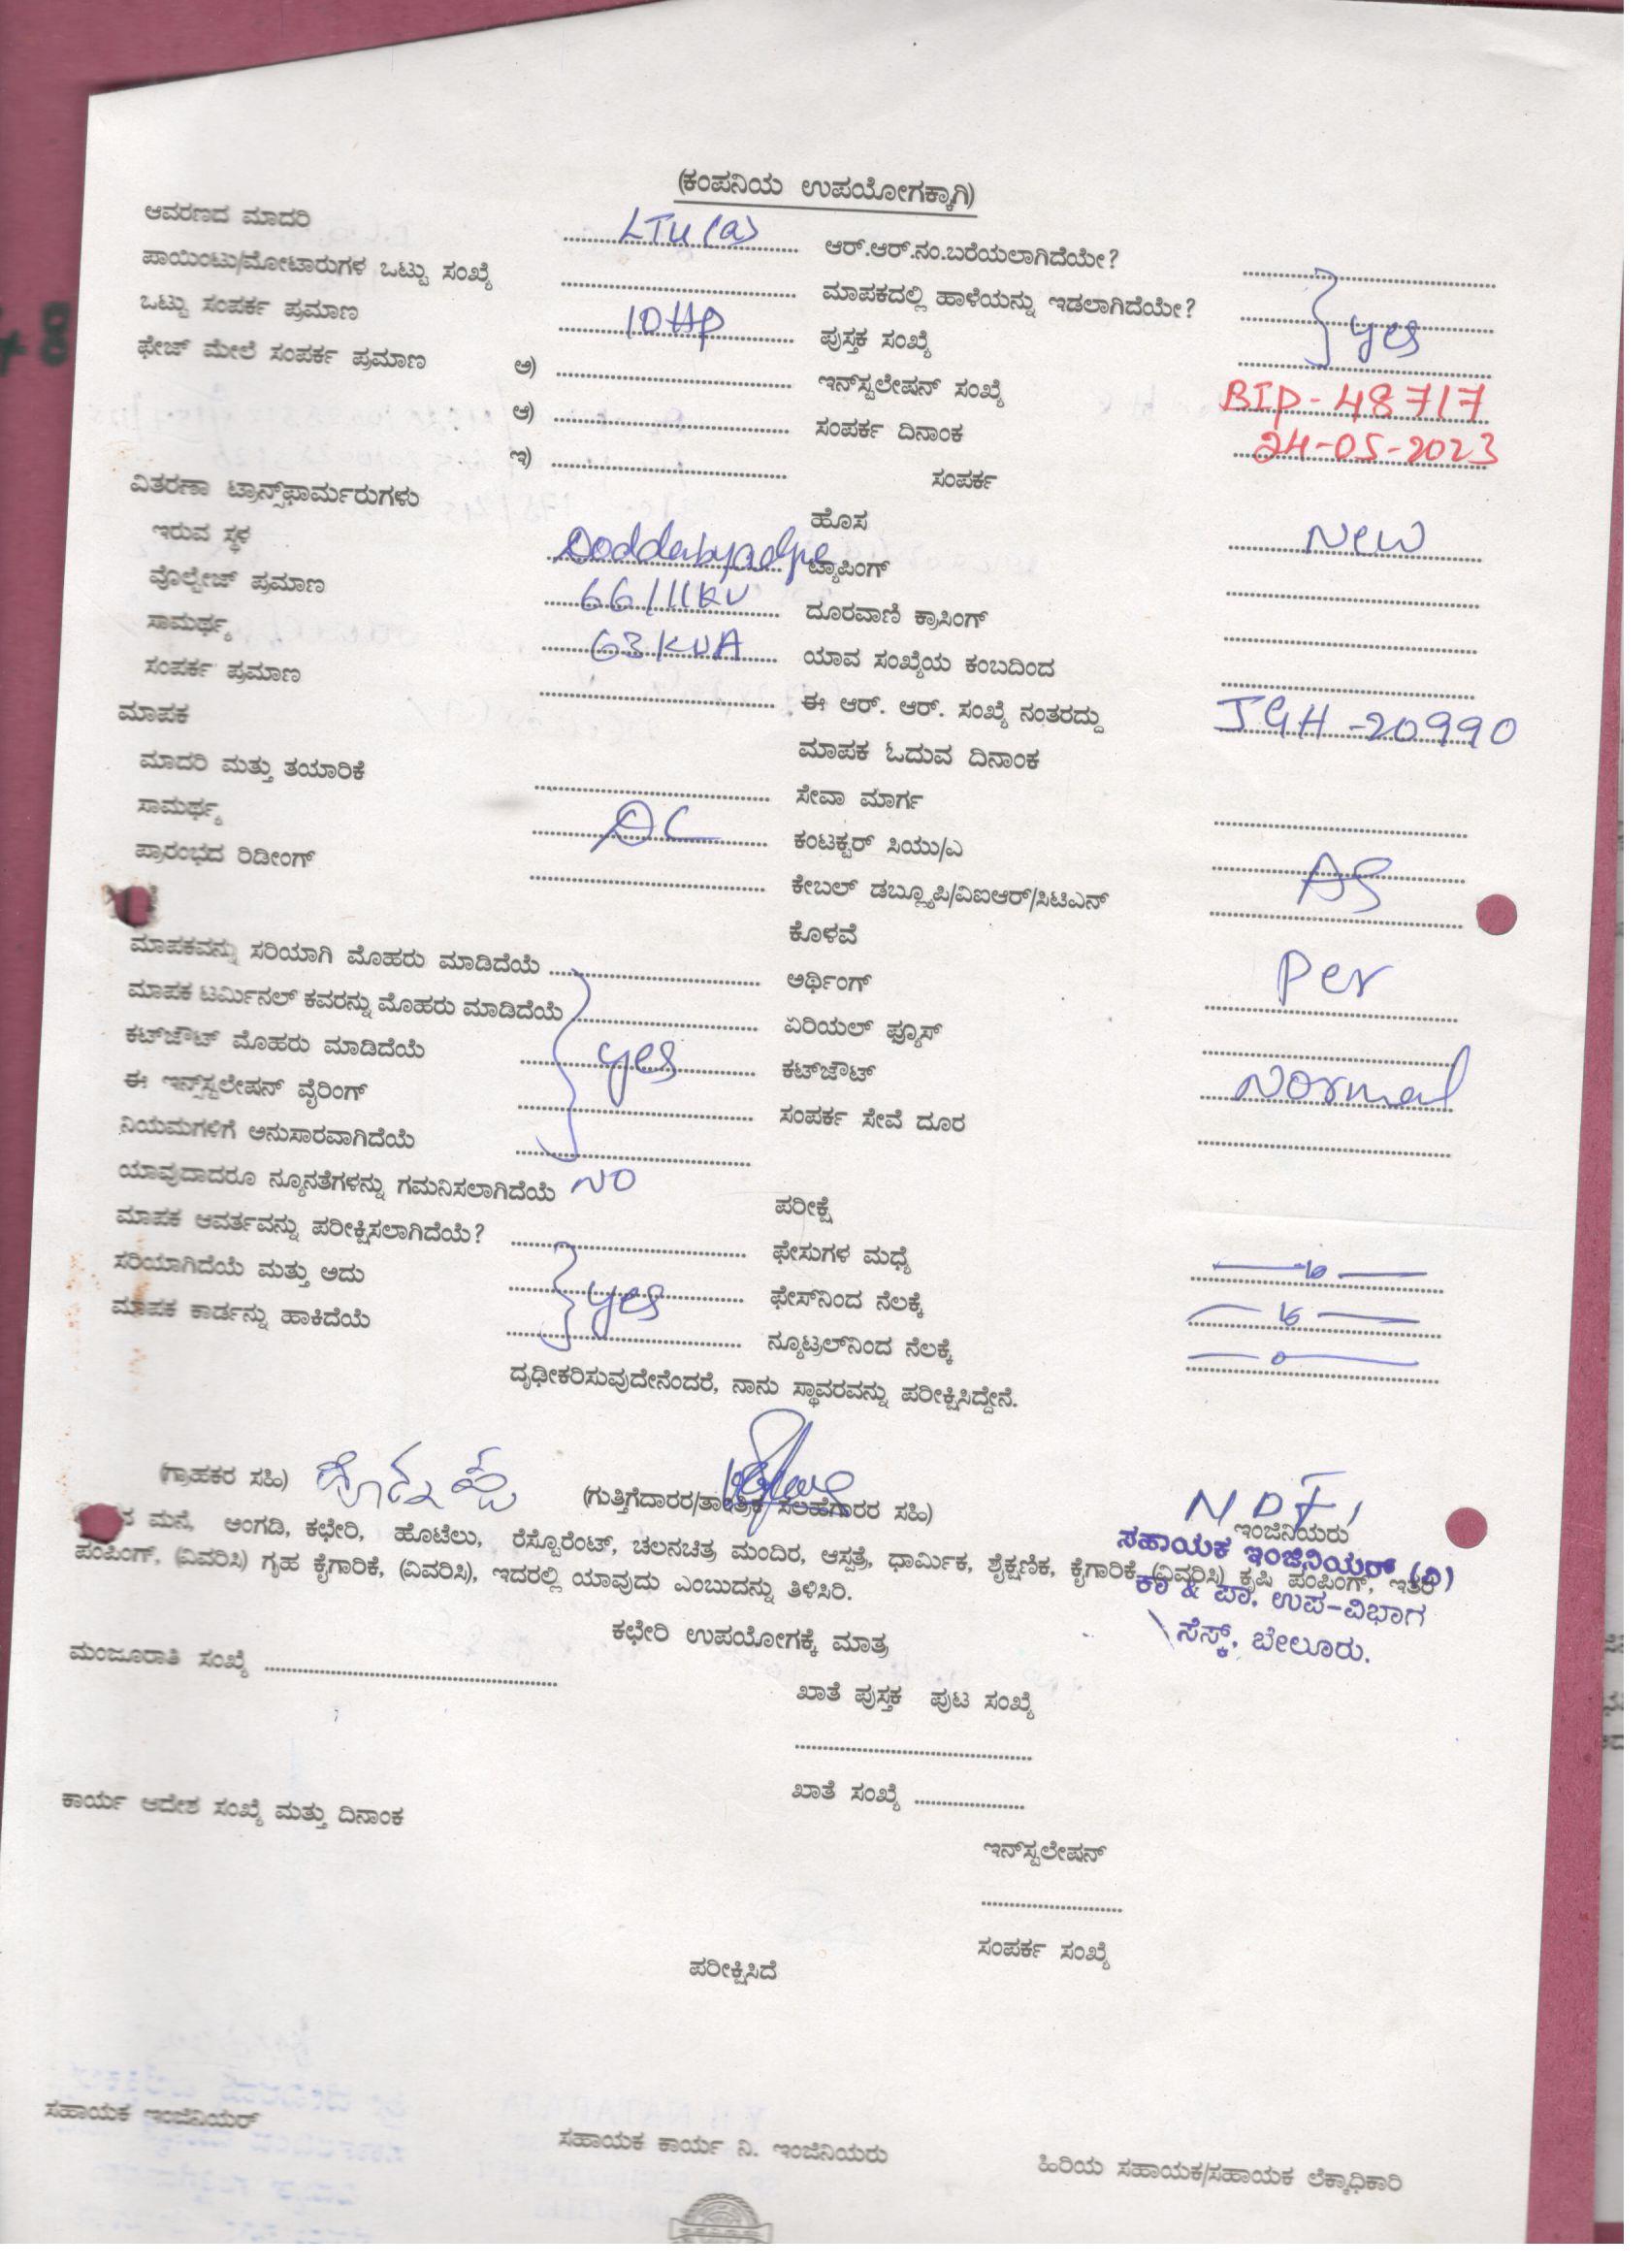 (ಕಂಪನಿಯ ಉಪಯೋಗಕ್ಕಾಗಿ)
ಆವರಣದ ಮಾದರಿ LT4(a) ಆರ್.ಆರ್.ನಂ.ಬರೆಯಲಾಗಿದೆಯೇ?
ಪಾಯಿಂಟು/ಮೋಟಾರುಗಳ ಒಟ್ಟು ಸಂಖ್ಯೆ ಮಾಪಕದಲ್ಲಿ ಹಾಳೆಯನ್ನು ಇಡಲಾಗಿದೆಯೇ? yes
ಒಟ್ಟು ಸಂಪರ್ಕ ಪ್ರಮಾಣ 10HP ಪುಸ್ತಕ ಸಂಖ್ಯೆ
ಫೇಜ್ ಮೇಲೆ ಸಂಪರ್ಕ ಪ್ರಮಾಣ ಅ) ಇನ್‌ಸ್ಟಲೇಷನ್ ಸಂಖ್ಯೆ BIP-48717
ಆ) ಸಂಪರ್ಕ ದಿನಾಂಕ 24-05-2023
ಇ) ಸಂಪರ್ಕ
ವಿತರಣಾ ಟ್ರಾನ್ಸ್‌ಫಾರ್ಮರುಗಳು ಹೊಸ New
ಇರುವ ಸ್ಥಳ Doddabyadge ಟ್ಯಾಪಿಂಗ್
ವೊಲ್ಟೇಜ್ ಪ್ರಮಾಣ 66/11KV ದೂರವಾಣಿ ಕ್ರಾಸಿಂಗ್
ಸಾಮರ್ಥ್ಯ 63KVA ಯಾವ ಸಂಖ್ಯೆಯ ಕಂಬದಿಂದ
ಸಂಪರ್ಕ ಪ್ರಮಾಣ ಈ ಆರ್. ಆರ್. ಸಂಖ್ಯೆ ನಂತರದ್ದು JGH-20990
ಮಾಪಕ ಮಾಪಕ ಓದುವ ದಿನಾಂಕ
ಮಾದರಿ ಮತ್ತು ತಯಾರಿಕೆ ಸೇವಾ ಮಾರ್ಗ
ಸಾಮರ್ಥ್ಯ DC ಕಂಟಕ್ಟರ್ ಸಿಯು/ಎ
ಪ್ರಾರಂಭದ ರಿಡೀಂಗ್ ಕೇಬಲ್ ಡಬ್ಲ್ಯೂಪಿ/ವಿಐಆರ್/ಸಿಟಿಎನ್ AS
ಕೊಳವೆ
ಮಾಪಕವನ್ನು ಸರಿಯಾಗಿ ಮೊಹರು ಮಾಡಿದೆಯೆ ಅರ್ಥಿಂಗ್ Per
ಮಾಪಕ ಟರ್ಮಿನಲ್ ಕವರನ್ನು ಮೊಹರು ಮಾಡಿದೆಯೆ ಏರಿಯಲ್ ಫ್ಯೂಸ್
ಕಟ್‌ಜೌಟ್ ಮೊಹರು ಮಾಡಿದೆಯೆ yes ಕಟ್‌ಜೌಟ್ Normal
ಈ ಇನ್ಸ್‌ಸ್ಟಲೇಷನ್ ವೈರಿಂಗ್ ಸಂಪರ್ಕ ಸೇವೆ ದೂರ
ನಿಯಮಗಳಿಗೆ ಅನುಸಾರವಾಗಿದೆಯೆ
ಯಾವುದಾದರೂ ನ್ಯೂನತೆಗಳನ್ನು ಗಮನಿಸಲಾಗಿದೆಯೆ NO ಪರೀಕ್ಷೆ
ಮಾಪಕ ಆವರ್ತವನ್ನು ಪರೀಕ್ಷಿಸಲಾಗಿದೆಯೆ? ಫೇಸುಗಳ ಮಧ್ಯೆ
ಸರಿಯಾಗಿದೆಯೆ ಮತ್ತು ಅದು yes ಫೇಸ್‌ನಿಂದ ನೆಲಕ್ಕೆ
ಮಾಪಕ ಕಾರ್ಡನ್ನು ಹಾಕಿದೆಯೆ ನ್ಯೂಟ್ರಲ್‌ನಿಂದ ನೆಲಕ್ಕೆ
ದೃಢೀಕರಿಸುವುದೇನೆಂದರೆ, ನಾನು ಸ್ಥಾವರವನ್ನು ಪರೀಕ್ಷಿಸಿದ್ದೇನೆ.
(ಗ್ರಾಹಕರ ಸಹಿ) (ಗುತ್ತಿಗೆದಾರರ/ತಾಂತ್ರಿಕ ಸಲಹೆಗಾರರ ಸಹಿ)
ಇಂಜಿನಿಯರು
ಸಹಾಯಕ ಇಂಜಿನಿಯರ್ (ವಿ)
ಕಾ & ಪಾ, ಉಪ-ವಿಭಾಗ
ಸೆಸ್ಕ್, ಬೇಲೂರು.
ಮನೆ, ಅಂಗಡಿ, ಕಛೇರಿ, ಹೊಟೆಲು, ರೆಸ್ಟೊರೆಂಟ್, ಚಲನಚಿತ್ರ ಮಂದಿರ, ಆಸ್ಪತ್ರೆ, ಧಾರ್ಮಿಕ, ಶೈಕ್ಷಣಿಕ, ಕೈಗಾರಿಕೆ (ವಿವರಿಸಿ) ಕೃಷಿ ಪಂಪಿಂಗ್, ಇತರೆ
ಪಂಪಿಂಗ್, (ವಿವರಿಸಿ) ಗೃಹ ಕೈಗಾರಿಕೆ, (ವಿವರಿಸಿ), ಇದರಲ್ಲಿ ಯಾವುದು ಎಂಬುದನ್ನು ತಿಳಿಸಿರಿ.
ಕಛೇರಿ ಉಪಯೋಗಕ್ಕೆ ಮಾತ್ರ
ಮಂಜೂರಾತಿ ಸಂಖ್ಯೆ
ಖಾತೆ ಪುಸ್ತಕ ಪುಟ ಸಂಖ್ಯೆ
ಖಾತೆ ಸಂಖ್ಯೆ
ಕಾರ್ಯ ಆದೇಶ ಸಂಖ್ಯೆ ಮತ್ತು ದಿನಾಂಕ
ಇನ್‌ಸ್ಟಲೇಷನ್
ಸಂಪರ್ಕ ಸಂಖ್ಯೆ
ಪರೀಕ್ಷಿಸಿದೆ
ಸಹಾಯಕ ಇಂಜಿನಿಯರ್
ಸಹಾಯಕ ಕಾರ್ಯ ನಿ. ಇಂಜಿನಿಯರು
ಹಿರಿಯ ಸಹಾಯಕ/ಸಹಾಯಕ ಲೆಕ್ಕಾಧಿಕಾರಿ